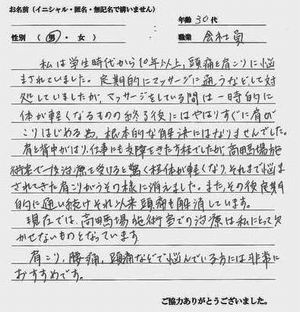 お名前（イニシャル・匿名・無記名で構いません）
年齢 30代
性別（男・女）
職業 会社員
私は学生時代から10年以上、頭痛と肩こりに悩
まされていました。定期的にマッサージに通うなどして対
処していましたが、マッサージをしている間は一時的に
体が軽くなるものの終る後にはやはりすぐに肩が
こりはじめる為、根本的な解決にはなりませんでした。
肩と背中がはり、仕事にも支障をきたす程でしたが、高田馬場施
術室で一度治療を受けると驚く程体が軽くなり、それまで悩ま
されてきた肩こりがうその様に消えました。またその後定期
的に通い続けそれ以来頭痛も解消しています。
現在では、高田馬場施術室での治療は私にとって欠
かせないものとなっています
肩こり、腰痛、頭痛などで悩んでいる方には非常に
おすすめです。
ご協力ありがとうございました。